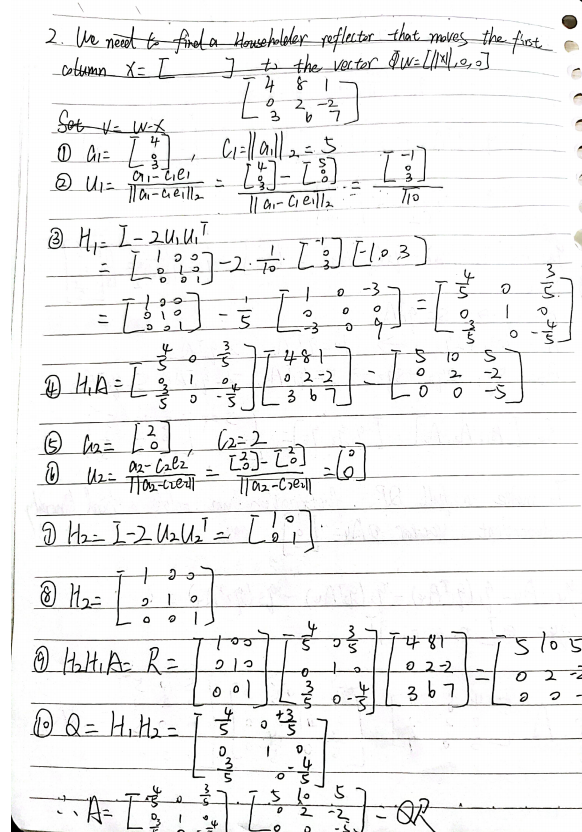 2. We need to find a Householder reflector that moves the first
column X = [ ] to the vector w = [||x||, 0, 0]
[4 8 1; 0 2 -2; 3 6 7]
Set v = w - x
① a₁ = [4; 0; 3], C₁ = ||a₁||₂ = 5
② u₁ = (a₁ - c₁e₁) / ||a₁ - c₁e₁||₂ = ([4; 0; 3] - [5; 0; 0]) / ||a₁ - c₁e₁||₂ = [-1; 0; 3] / √10
③ H₁ = I - 2u₁u₁ᵀ
= [1 0 0; 0 1 0; 0 0 1] - 2 · 1/10 · [-1; 0; 3] [-1, 0 3]
= [1 0 0; 0 1 0; 0 0 1] - 1/5 [1 0 -3; 0 0 0; -3 0 9] = [4/5 0 3/5; 0 1 0; 3/5 0 -4/5]
④ H₁A = [4/5 0 3/5; 0 1 0; 3/5 0 -4/5] [4 8 1; 0 2 -2; 3 6 7] = [5 10 5; 0 2 -2; 0 0 -5]
⑤ a₂ = [2; 0], C₂ = 2
⑥ u₂ = (a₂ - c₂e₂) / ||a₂ - c₂e₂|| = ([2; 0] - [2; 0]) / ||a₂ - c₂e₂|| = [0; 0]
⑦ H₂ = I - 2u₂u₂ᵀ = [1 0; 0 1]
⑧ H₂ = [1 0 0; 0 1 0; 0 0 1]
⑨ H₂H₁A = R = [1 0 0; 0 1 0; 0 0 1] [4/5 0 3/5; 0 1 0; 3/5 0 -4/5] [4 8 1; 0 2 -2; 3 6 7] = [5 10 5; 0 2 -2; 0 0 -
⑩ Q = H₁H₂ = [4/5 0 +3/5; 0 1 0; 3/5 0 -4/5]
∴ A = [4/5 0 3/5; 0 1 0; 3/5 0 -4/5] · [5 10 5; 0 2 -2; 0 0 -5] = QR